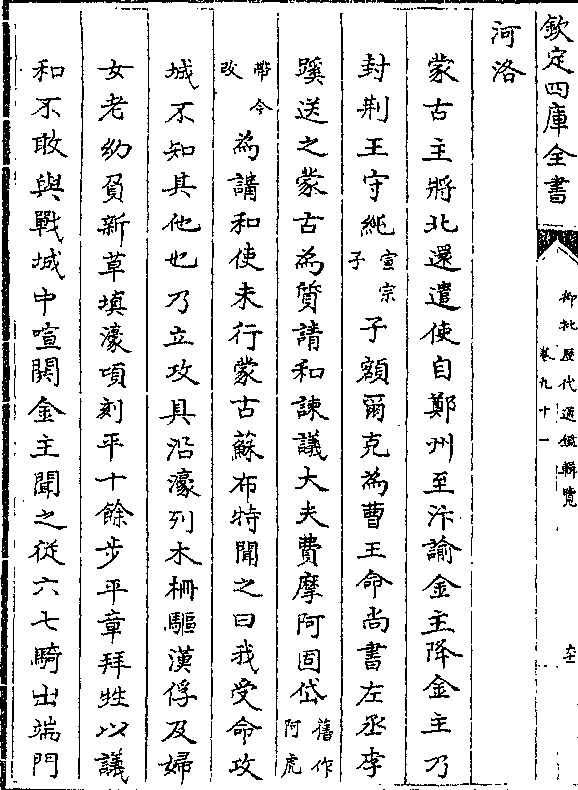 欽定四庫全書
御批歷代通鑑輯覽
卷九十一
河洛
蒙古主將北還遣使自鄭州至汴諭金主降金主乃
封荆王守純宣宗子子額爾克為曹王命尚書左丞李
蹊送之蒙古為質請和諫議大夫費摩阿固岱舊作阿虎
帶今改為講和使未行蒙古蘇布特聞之曰我受命攻
城不知其他也乃立攻具沿濠列木柵驅漢俘及婦
女老幼負新草填濠頃刻平十餘步平章拜甡以議
和不敢與戰城中喧鬨金主聞之從六七騎出端門